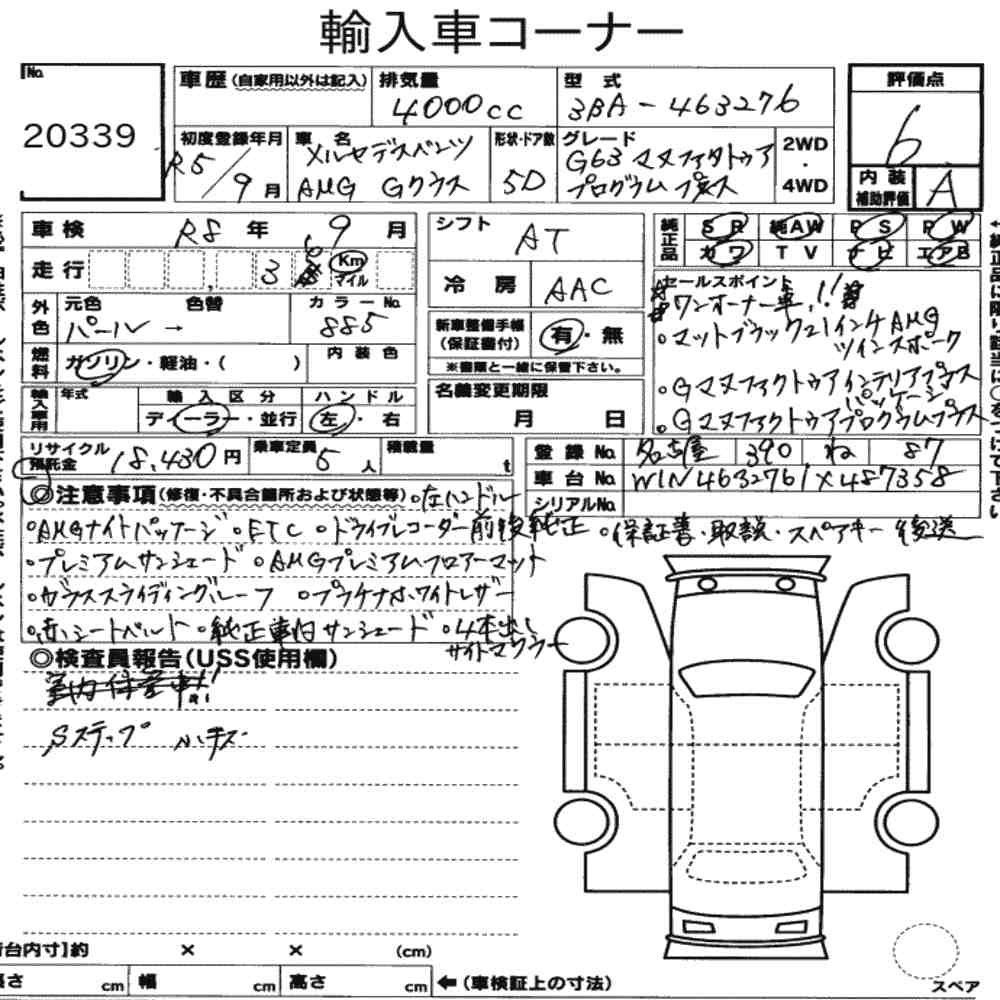 輸入車コーナー
No.
20339
車歴 (自家用以外は記入)
排気量
4000cc
型式
3BA-463276
評価点
6
内装補助評価
A
初度登録年月
R5/9月
車名
メルセデスベンツ
AMG Gクラス
形状・ドア数
5D
グレード
G63 マヌファクトゥア
プログラムプラス
2WD
・
4WD
車検 R8年 9月
走行
3
Km
マイル
外色
元色
色替
カラーNo.
パール→
885
燃料
ガソリン・軽油・( )
内装色
輸入車用
年式
輸入区分
ハンドル
ディーラー・並行
左・右
シフト
AT
冷房
AAC
新車整備手帳
(保証書付)
有・無
※書類と一緒に保管下さい。
名義変更期限
月 日
純正品
SR 純AW PS PW
カワ TV ナビ エアB
セールスポイント
ワンオーナー車!!
・マットブラック21インチAMG
ツインスポーク
・Gマヌファクトゥアインテリアプラス
パッケージ
・Gマヌファクトゥアプログラムプラス
リサイクル預託金 18,430円
乗車定員 5人
積載量 t
登録No. 名古屋 390 ね 87
車台No. W1N4632761X487358
シリアルNo.
◎注意事項(修復・不具合箇所および状態等)・左ハンドル
・AMGナイトパッケージ ・ETC ・ドライブレコーダー前後純正 ・保証書・取説・スペアキー後送
・プレミアムサンシェード ・AMGプレミアムフロアーマット
・ガラススライディングルーフ ・プラチナホワイトレザー
・赤いシートベルト ・純正車内サンシェード ・4本出し
サイドマフラー
◎検査員報告(USS使用欄)
Sステップ 小キズ
台内寸]約 × × (cm)
長さ cm 幅 cm 高さ cm ←(車検証上の寸法)
スペア